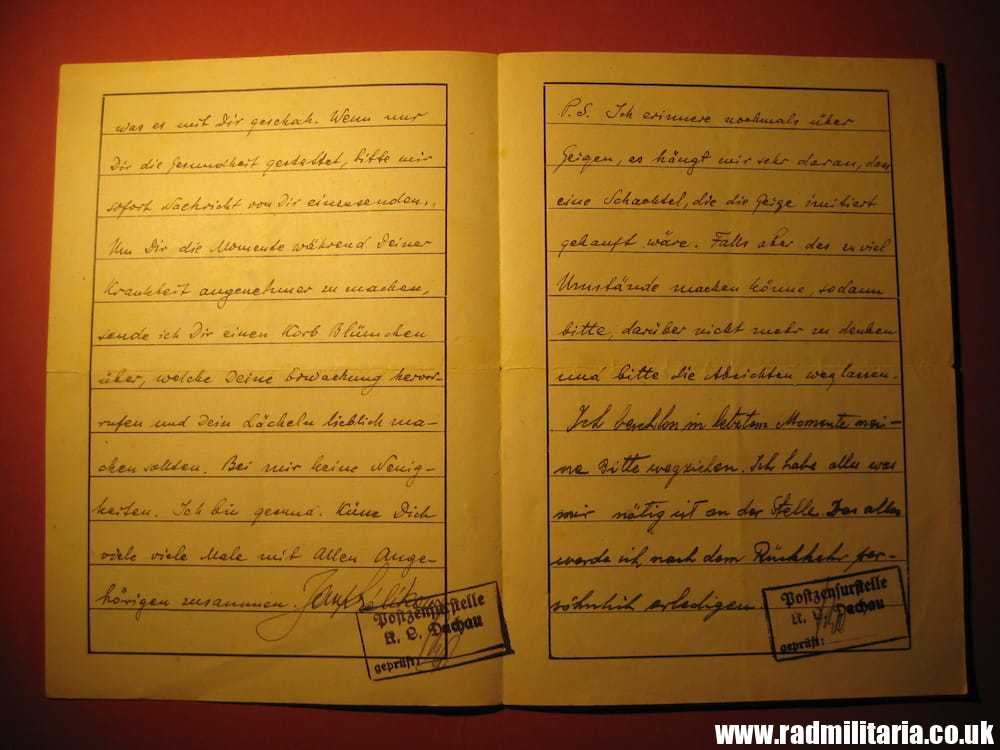 was es mit Dir geschah. Wenn nur
Dir die Gesundheit gestattet, bitte mir
sofort Nachricht von Dir einzusenden.
Um Dir die Momente während Deiner
Krankheit angenehmer zu machen,
sende ich Dir einen Korb Blümchen
über, welche Deine Erwachung hervor-
rufen und Dein Lächeln lieblich ma-
chen sollten. Bei mir keine Neuig-
keiten. Ich bin gesund. Küne Dich
viele viele Male mit Allen Ange-
hörigen zusammen.
Postzensurstelle
K. L. Dachau
geprüft:
P.S. Ich erinnere nochmals über
Geigen, es hängt mir sehr daran, das
eine Schachtel, die die Geige imitiert
gekauft wäre. Falls aber das zu viel
Umstände machen könne, sodann
bitte, darüber nicht mehr zu denken
und bitte die Absichten weglassen.
Ich beschloss in letztem Momente mei-
ne Bitte wegziehen. Ich habe alles was
mir nötig ist an der Stelle. Das alles
werde ich nach dem Rückkehr per-
söhnlich erledigen
Postzensurstelle
K. L. Dachau
geprüft:
www.radmilitaria.co.uk